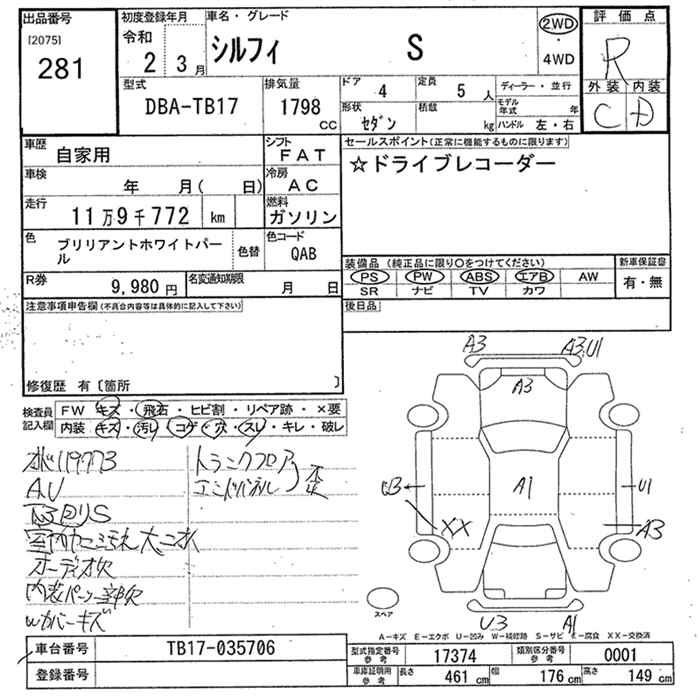 出品番号
[2075]
281
初度登録年月
令和
2 3 月
車名・グレード
シルフィ S
2WD
・
4WD
評価点
R
外装 内装
C D
型式
DBA-TB17
排気量
1798
CC
ドア
4
定員
5 人
形状
セダン
積載
kg
ディーラー・並行
モデル年式 年
ハンドル 左・右
車歴
自家用
シフト
FAT
車検
年 月( 日)
冷房
AC
走行
11万9千772 km
燃料
ガソリン
色
ブリリアントホワイトパール
色替
色コード
QAB
R券
9,980 円
名変通知期限
月 日
セールスポイント(正常に機能するものに限ります)
☆ドライブレコーダー
装備品(純正品に限り○をつけてください)
新車保証書
PS PW ABS エアB AW
SR ナビ TV カワ
有・無
後日品
注意事項申告欄(不具合内容等は具体的に記入して下さい)
修復歴 有〔箇所 〕
検査員
記入欄
FW キズ・飛石・ヒビ割・リペア跡・×要
内装 キズ・汚レ・コゲ・穴・スレ・キレ・破レ
119773
トランクフロア
エンドパネル
歪
AU
下回りS
オーディオ欠
内装パーツ一部欠
Wカバーキズ
A3
A3.U1
A3
U3
A1
U1
XX
A3
スペア
U3
A1
A-キズ E-エクボ U-凹み W-補修跡 S-サビ C-腐食 XX-交換済
車台番号
TB17-035706
登録番号
型式指定番号
参考
17374
類別区分番号
参考
0001
車庫証明用
参考
長さ
461 cm
幅
176 cm
高さ
149 cm